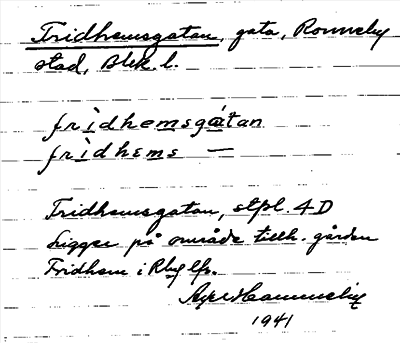 Fridhemsgatan, gata, Ronneby
stad, Blek. l.
frìdhemsgátan
frìdhems —
Fridhemsgatan, stpl. 4 D
Ligger på område tillh. gården
Fridhem i Rby lfs.
Axel Hammelin
1941